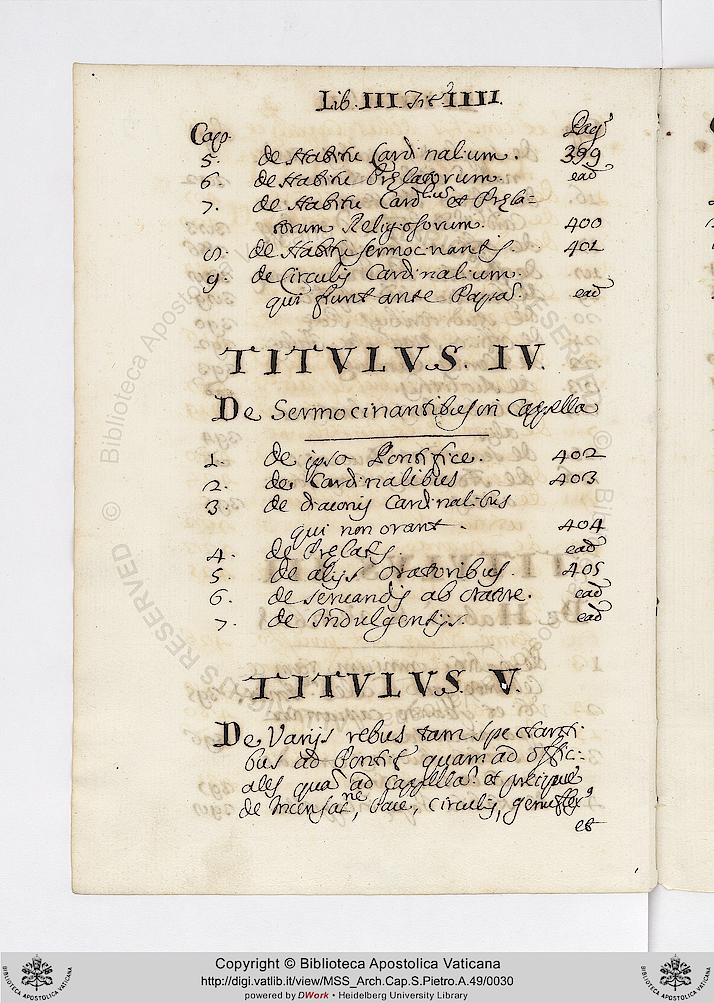 Lib. III Tit. IIII.
Cap. Pag.
5. de Habitu Cardinalium. 399
6 de Habitu Prælatorum. ead
7. de Habitu Card.lium et Præla=
torum Religiosorum. 400
8. de Habitu sermocinantis. 401
9. de Circulis Cardinalium.
qui fiunt ante Papã. ead
TITVLVS. IV.
De Sermocinantibus in Cappella
1. de ipso Pontifice. 402
2. de Cardinalibus 403
3. de diaconis Cardinalibus
qui non orant. 404
4. de Prelatis. ead
5. de alijs Oratoribus. 405
6. de servandis ab Oratore. ead
7. de Indulgentijs. ead
TITVLVS. V.
De Varijs rebus tam spectanti
bus ad Pontif. quam ad offici=
ales quã ad Cappellã. et precipue
de Incensat.ne, Pace, circulis, genuflex.
et
Copyright © Biblioteca Apostolica Vaticana
http://digi.vatlib.it/view/MSS_Arch.Cap.S.Pietro.A.49/0030
powered by DWork • Heidelberg University Library